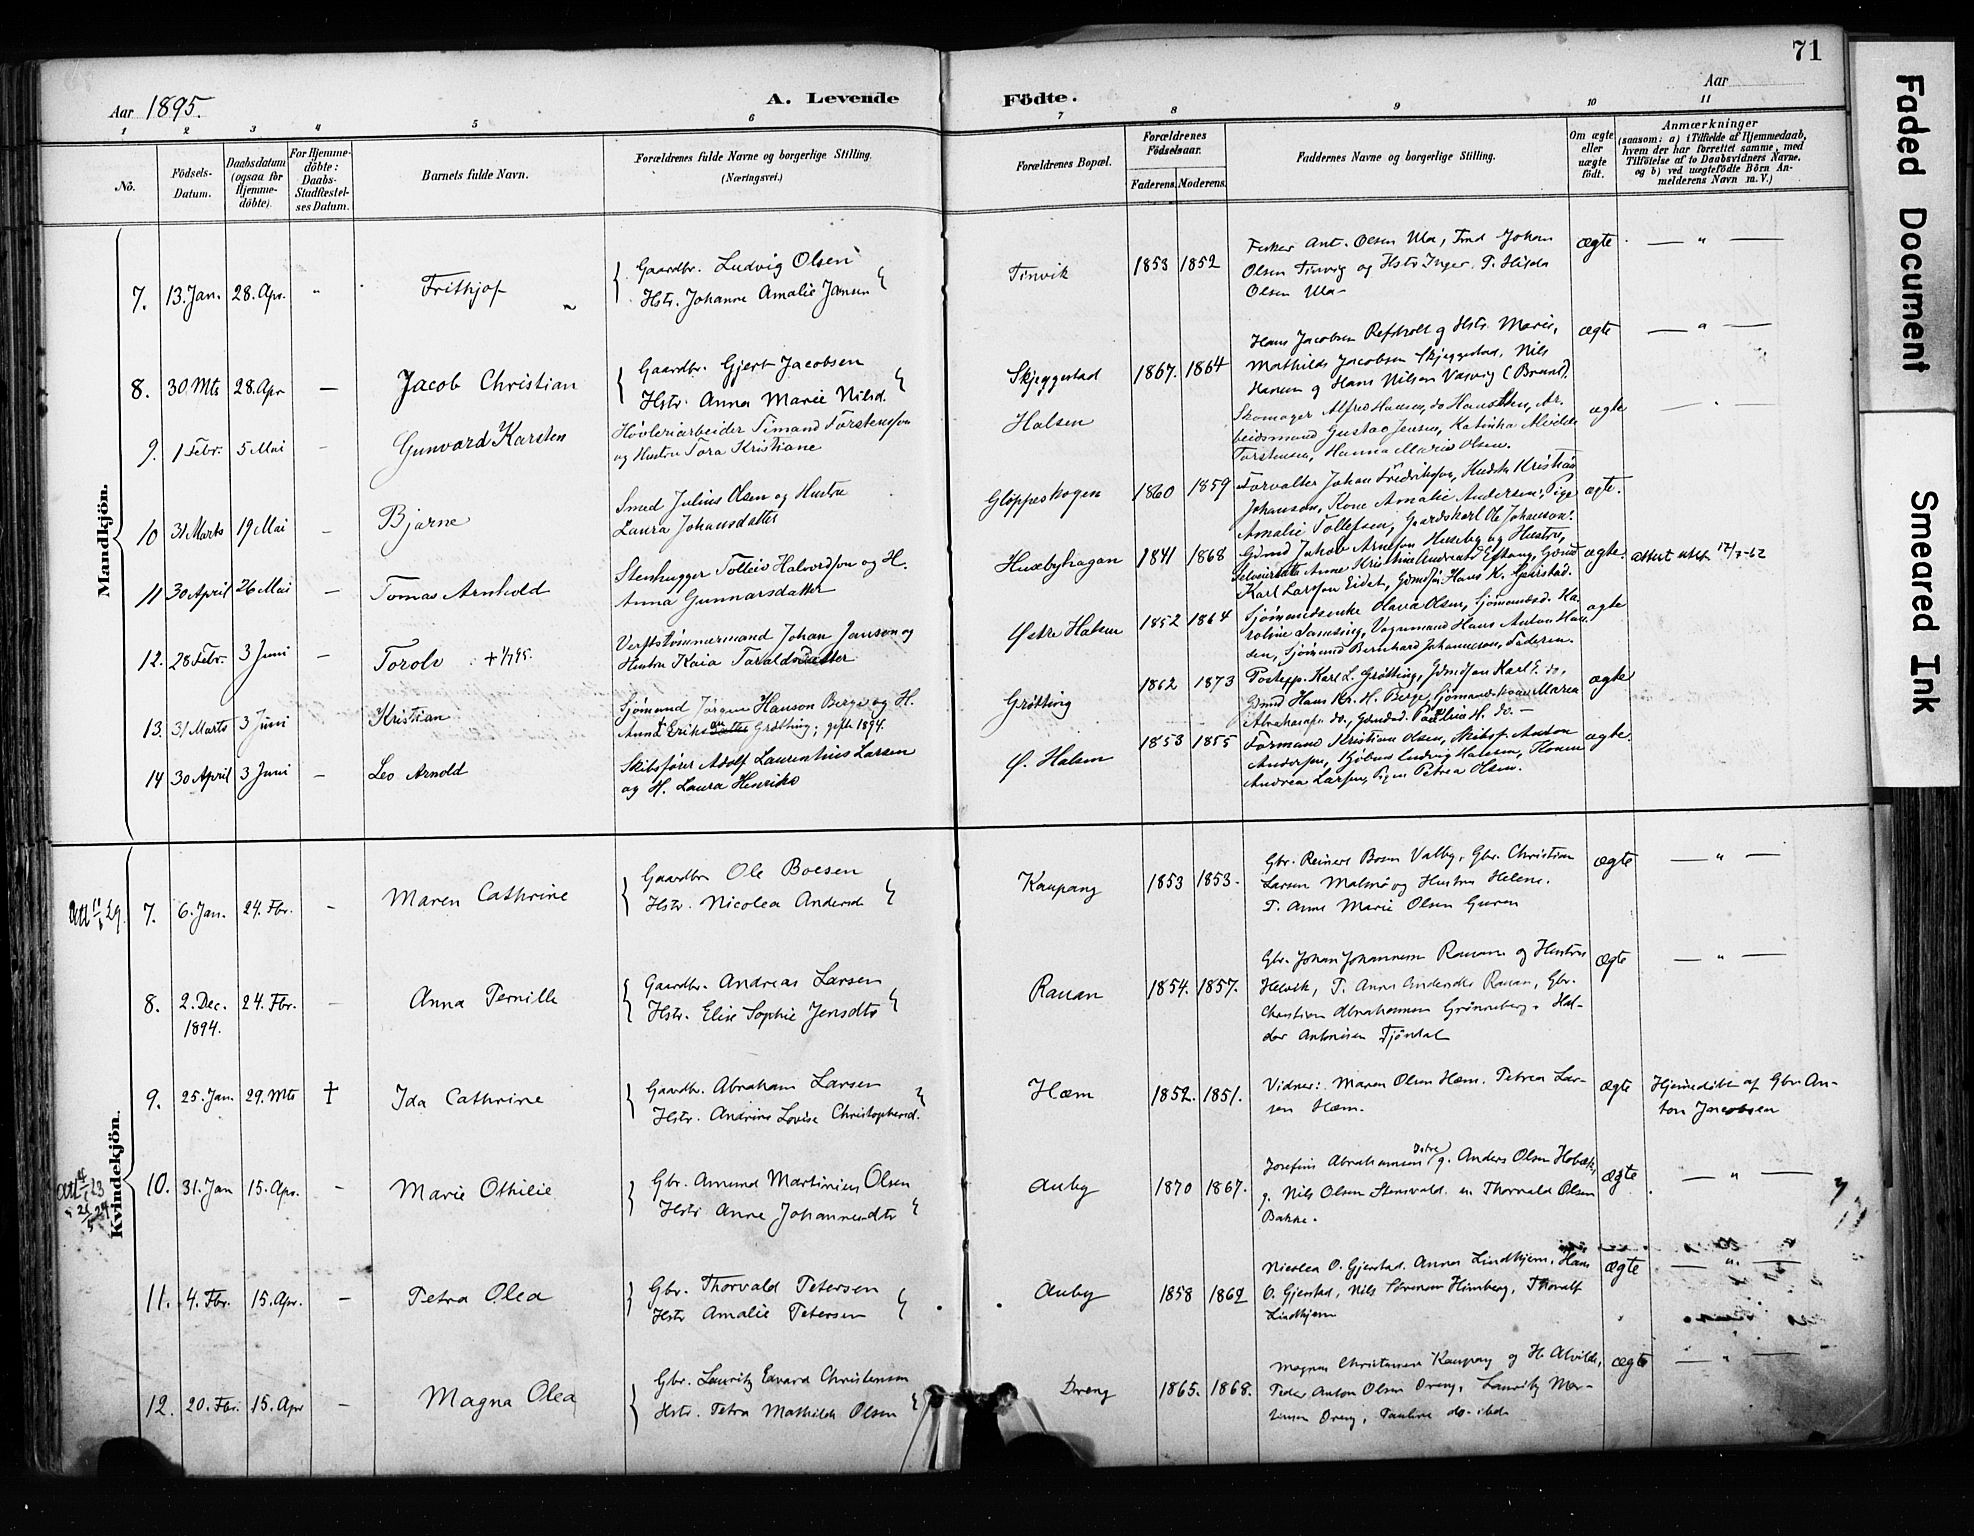 71
Aar 1895.
A. Levende Födte.
Aar
1 2 3 4 5 6 7 8 9 10 11
Nô.
Födsels-Datum.
Daabsdatum (ogsaa for Hjemmedöbte).
For Hjemmedöbte: Daabs-Stadfestelses Datum.
Barnets fulde Navn.
Forældrenes fulde Navne og borgerlige Stilling.
(Næringsvei.)
Forældrenes Bopæl.
Forældrenes Födselsaar.
Faderens. Moderens.
Faddernes Navne og borgerlige Stilling.
Om ægte eller uægte födt.
Anmærkninger
(saasom: a) i Tilfælde af Hjemmedaab, hvem der har forrettet samme, med Tilföielse af to Daabsvidners Navne. og b) ved uægtefödte Börn Anmelderens Navn m. V.)
Mandkjön.
7. 13. Jan. 28. Apr. " Frithjof Gaardbr. Ludvig Olsen
Hstr. Johanne Amalie Jansen
Tinvik 1853 1852
Fisker Ant. Olsen Ula, Johan
Olsen Tinvig og Hstr Inger. P. Hilda
Olsen Ula
ægte — " —
8. 30 Mts 28. Apr — Jacob Christian Gaardbr. Gjert Jacobsen
Hstr. Anna Marie Nilsd.
Skjeggestad 1867. 1864
Hans Jacobsen Refsholt g Hstr. Marie,
Mathilde Jacobsen Skjeggestad, Nils
Hansen g Hans Nilsen Vasvig (Brunl).
ægte — " —
9. 1 Febr. 5 Mai — Gunvard Karsten Høvleriarbeider Simand Torstensson
og Hustru Tora Kristiane
Halsen
Skomager Alfred Hansen, do Hans Ar-
beidsmand Gustav Jensen, Katinka Alvilde
Torstensen, Hanna Marie Olsen.
ægte — " —
10 31 Marts 19 Mai — Bjarne Smed Julius Olsen og Hustru
Laura Johansdatter
Gloppeskogen 1860 1859
Forvalter Johan Fredriksen, Kristian
Johanson, Kone Amalie Andersen, Pige
Amalie Tollefsen, Gaardskarl Ole Johanson.
ægte.
11 30 April 26 Mai — Tomas Arnhold Stenhugger Tolleiv Halvordson og H.
Anna Gunnarsdatter
Husebyhagan 1841 1868
Gdmd Jakob Arneson Huseby og Hustru,
Anne Kristine Andreasd Eftang, Gdmd
Karl Larsson Eidet, Hans K.
ægte. attest utst. 17/7-62
12. 28 Febr. 3 Juni — Torolv + Verftstømmermand Johan Janson og
Hustru Kaia Taraldsdatter
Østre Halsen 1852 1864
Sjømandsenke Olava Olsen, Sjømandsd. Ka-
roline Lansing, Vognmand Hans Anton Han-
sen, Sjømand Bernhard Johannesen, Faderen.
ægte
13. 31 Marts 3 Juni Kristian Sjømand Jørgen Hanson Berge og H.
Anna Eriksdatter Grøtting; gift 1894.
Grøtting 1862 1873
Karl L. Grøtting, Karl E. do,
Gdmd Hans Kr. H. Berge, Sjømandskone Maren
Abrahamsen do., Pauline H. do. —
ægte
14 30 April 3 Juni — Leo Arnold Skibsfører Adolf Laurentius Larsen
og H. Laura Henrike
Ø. Halsen 1853 1855
Formand Kristian Olsen, Skibsf. Anton
Andersen, Ludvig Halvorsen, Konen
Andrea Larsen, Pigen Petrea Olsen.
ægte.
Kvindekjön.
Att 11/6 29. 7. 6. Jan. 24. Fbr. — Maren Cathrine Gaardbr Ole Boesen
Hstr. Nicolea Andersd
Kaupang 1853 1853.
Gbr. Reinert Bosen Valby, Gbr. Christian
Larsen Malmø og Hustru Helene.
P. Anne Marie Olsen Guren
ægte — " —
8. 2. Dec. 1894. 24. Fbr. — Anna Pernille Gaardbr. Andreas Larsen
Hstr. Elise Sophie Jensdtr
Rauan 1854. 1857.
Gbr. Johan Johannessen Rauan og Hustru
Helvik, P. Anne Andersdtr Rauan, Gbr.
Christian Abrahamsen Grønneberg, Hal-
dor Antonisen Tjøndal
ægte — " —
9. 25. Jan. 29. Mts † Ida Cathrine Gaardbr. Abraham Larsen
Hstr. Andrine Lovise Christophersd.
Hæm 1852. 1851.
Vidner: Maren Olsen Hæm. Petrea Lar-
sen Hæm.
ægte Hjemmedöbt af Gbr An-
ton Jacobsen
10. 31. Jan 15. Apr. — Marie Othilie Gbr. Amund Martinius Olsen
Hstr Anne Johannesdtr
Auby 1870 1867.
Josefine Abrahamsen g. Anders Olsen Hobæk,
g. Nils Olsen Stensvald. Thorvald Olsen
Bakke.
ægte — " —
11. 4. Fbr. 15. Apr. — Petra Olea Gbr. Thorvald Petersen
Hstr Amalie Petersen
Auby 1858 1862
Nicolea O. Gjerstad. Anna Lindhjem, Hans
O. Gjerstad, Nils Sørensen Himberg, Thorvald
Lindhjem
ægte — " —
12. 20. Fbr. 15. Apr — Magna Olea Gbr. Lauritz Edvard Christensen
Hstr. Petra Mathilde Olsen
Dreng 1865. 1868.
Magnus Christensen Kaupang og H. Alvilde,
Peder Anton Olsen Dreng, Lauritz Mar-
Dreng, Pauline do ibd
ægte — " —
Faded Document
Smeared Ink